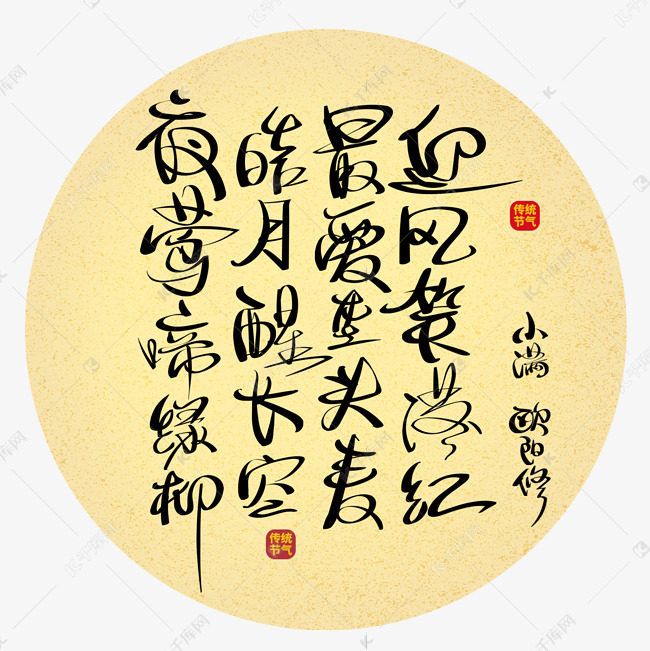 夜莺啼绿柳
皓月醒长空
最爱垄头麦
迎风笑落红
小满 欧阳修
传统
节气
传统
节气
千库网